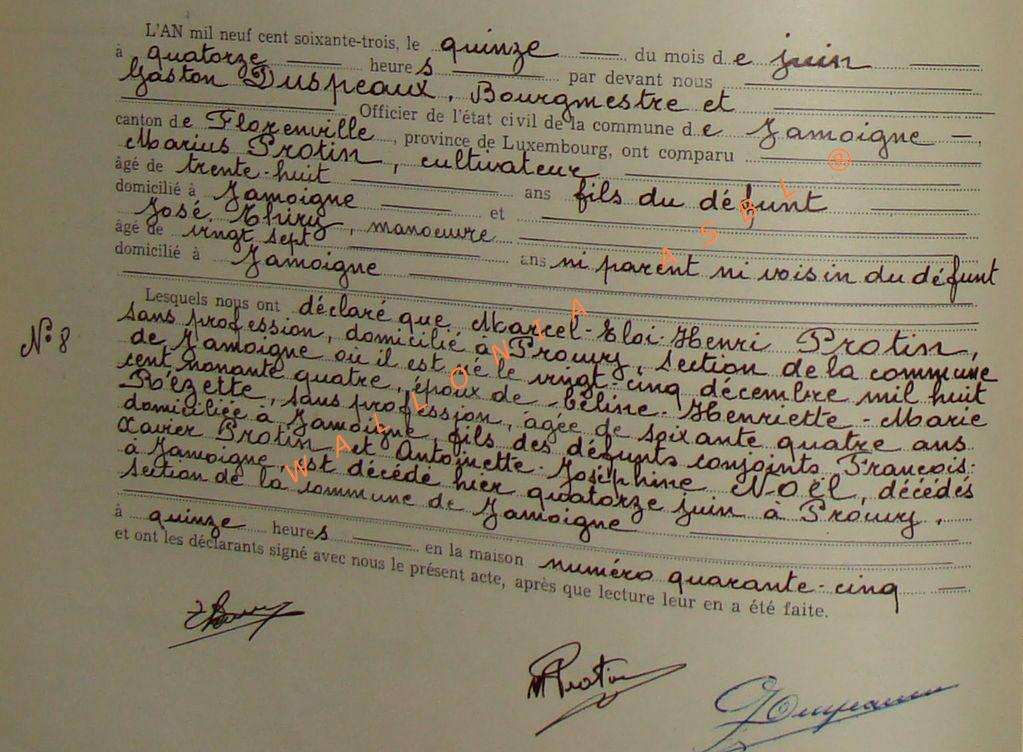 L'AN mil neuf cent soixante-trois, le quinze du mois de juin
à quatorze heures par devant nous
Gaston Duspeaux, Bourgmestre et
Officier de l'état civil de la commune de Jamoigne
canton de Florenville, province de Luxembourg, ont comparu
Marius Protin, cultivateur
âgé de trente-huit ans fils du défunt
domicilié à Jamoigne et
José Thiry, manoeuvre
âgé de vingt sept ans ni parent ni voisin du défunt
domicilié à Jamoigne
Lesquels nous ont déclaré que Marcel-Eloi-Henri Protin,
sans profession, domicilié à Prouvy, section de la commune
de Jamoigne où il est né le vingt-cinq décembre mil huit
N° 8
cent nonante quatre, époux de Céline-Henriette-Marie
Rézette, sans profession, âgée de soixante quatre ans
domiciliée à Jamoigne, fils des défunts conjoints François-
Xavier Protin et Antoinette-Joséphine Noël, décédés
à Jamoigne, est décédé hier quatorze juin à Prouvy,
section de la commune de Jamoigne
à quinze heures en la maison numéro quarante-cinq
et ont les déclarants signé avec nous le présent acte, après que lecture leur en a été faite.
Thiry
M Protin
G Duspeaux
WALLONIA ASBL ®